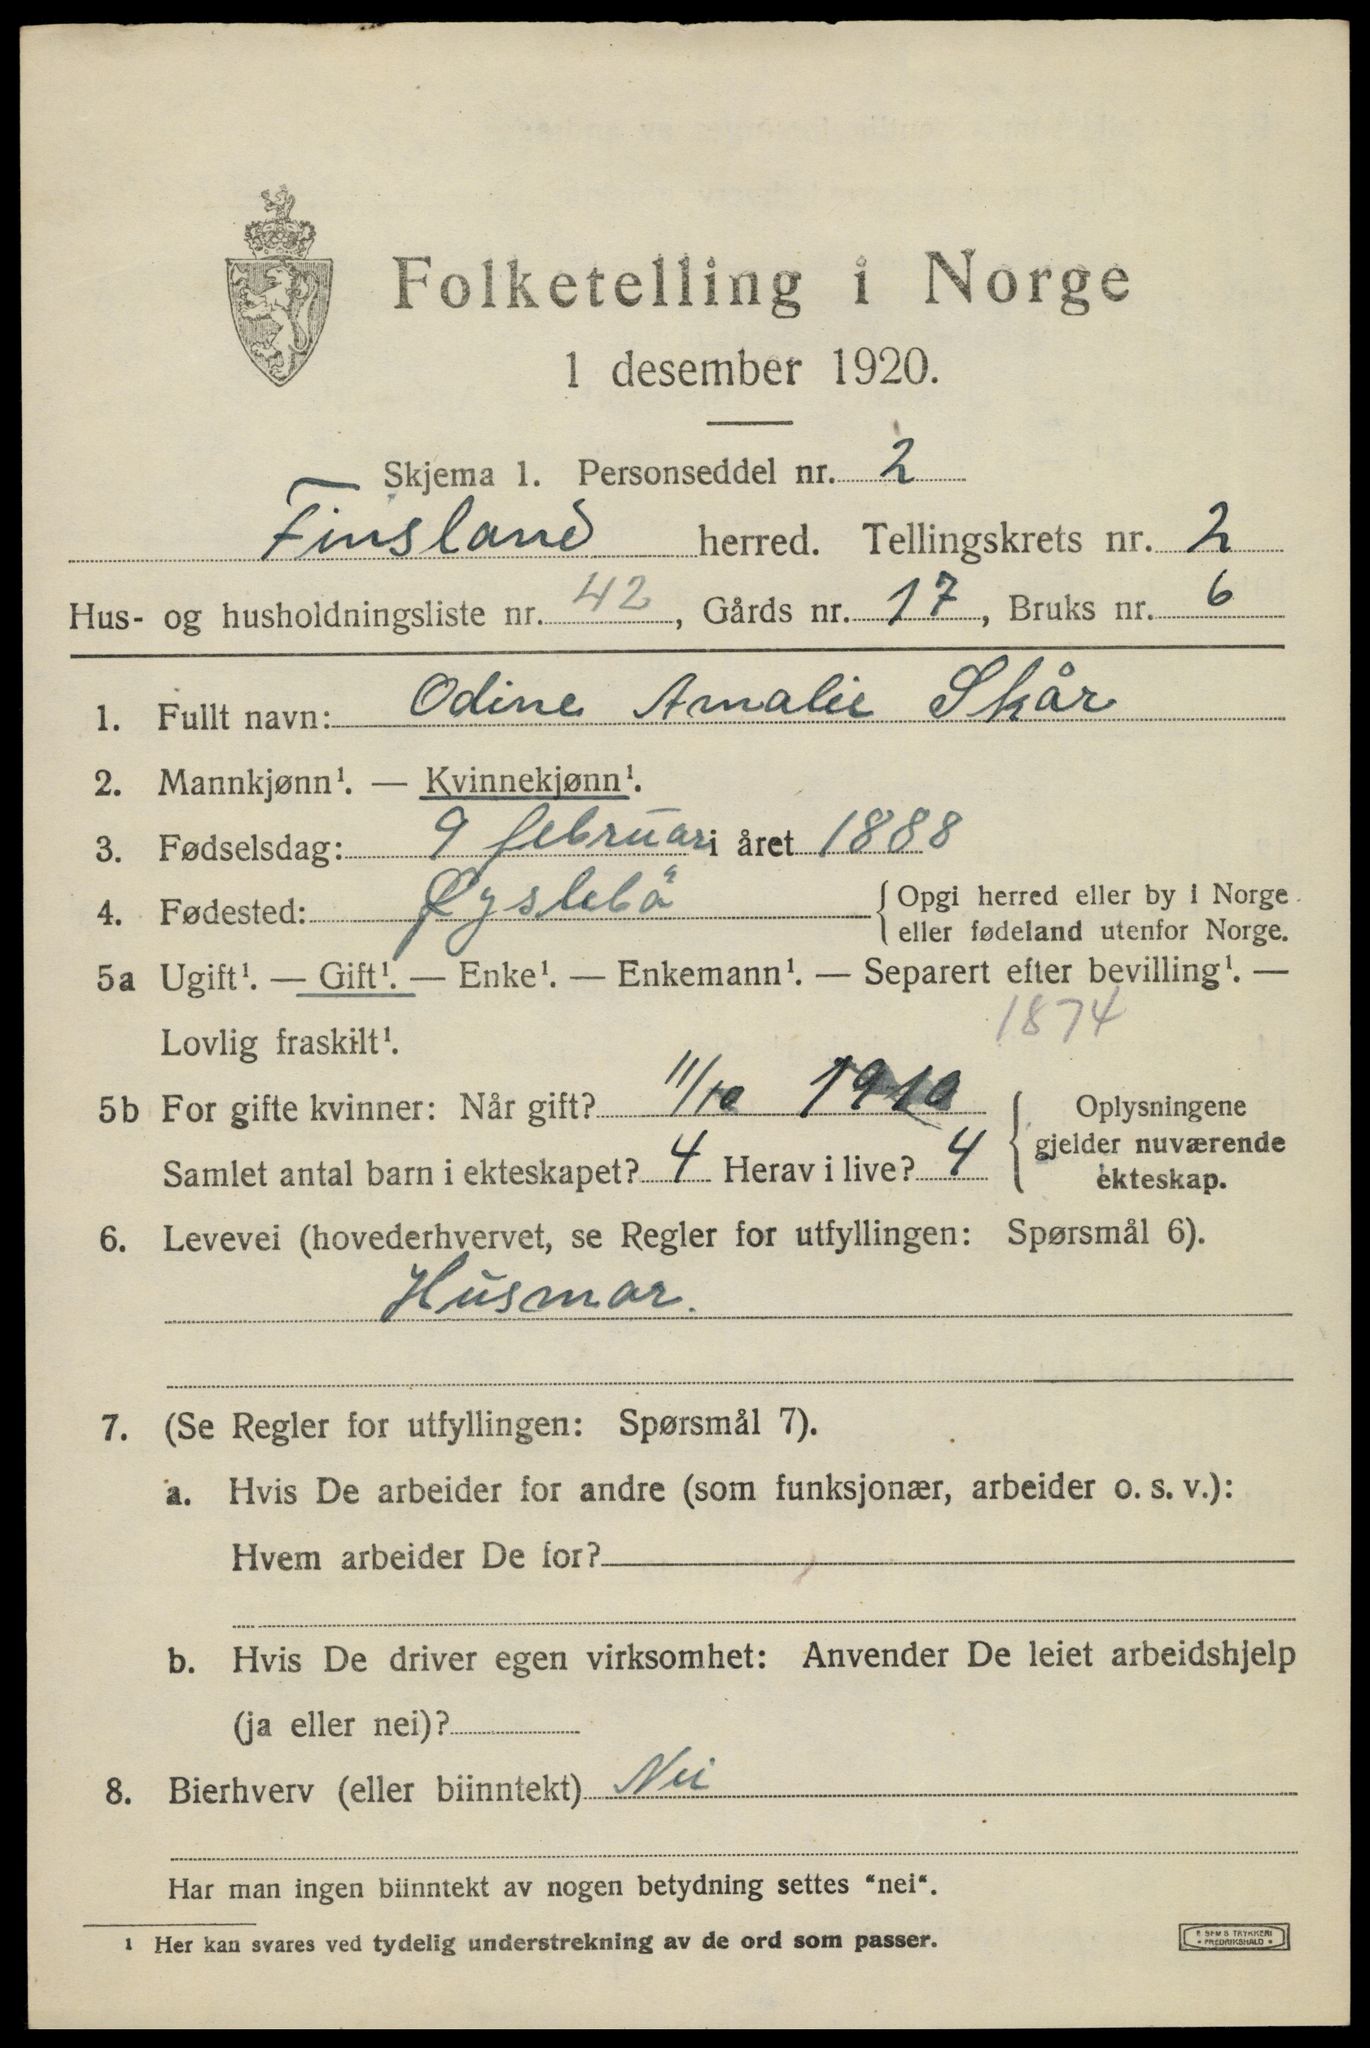 Folketelling i Norge
1 desember 1920.
Skjema 1. Personseddel nr. 2
Finsland herred. Tellingskrets nr. 2
Hus- og husholdningsliste nr. 42, Gårds nr. 17, Bruks nr. 6
1. Fullt navn: Odine Amalie Skår
2. Mannkjønn¹. — Kvinnekjønn¹.
3. Fødselsdag: 9 februar i året 1888
4. Fødested: Øyslebø { Opgi herred eller by i Norge
eller fødeland utenfor Norge.
5a Ugift¹. — Gift¹. — Enke¹. — Enkemann¹. — Separert efter bevilling¹. —
Lovlig fraskilt¹. 1874
5b For gifte kvinner: Når gift? 11/10 1910
Samlet antal barn i ekteskapet? 4 Herav i live? 4
{ Oplysningene
gjelder nuværende
ekteskap.
6. Levevei (hovederhvervet, se Regler for utfyllingen: Spørsmål 6).
Husmor.
7. (Se Regler for utfyllingen: Spørsmål 7).
a. Hvis De arbeider for andre (som funksjonær, arbeider o. s. v.):
Hvem arbeider De for?
b. Hvis De driver egen virksomhet: Anvender De leiet arbeidshjelp
(ja eller nei)?
8. Bierhverv (eller biinntekt) Nei
Har man ingen biinntekt av nogen betydning settes "nei".
¹ Her kan svares ved tydelig understrekning av de ord som passer.
TRYKKERI
FREDRIKSHALD